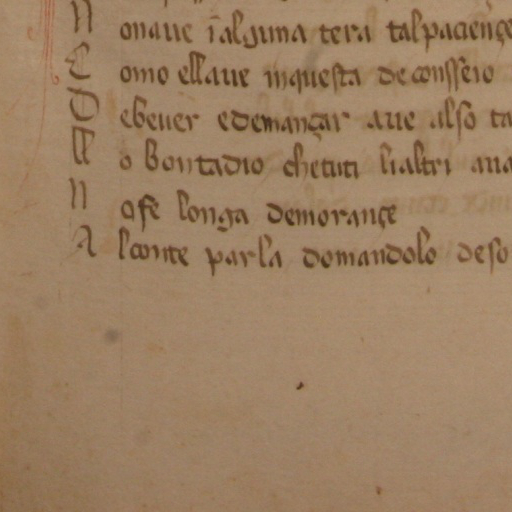 N onaue ī alguna tera tal paciençe
C omo ell aue in questa de consseio
D e beuer e demançar aue al so ta
ll o bontadio che tuti li altri aua
N o fe longa demorançe
A l conte parla domandolo de so